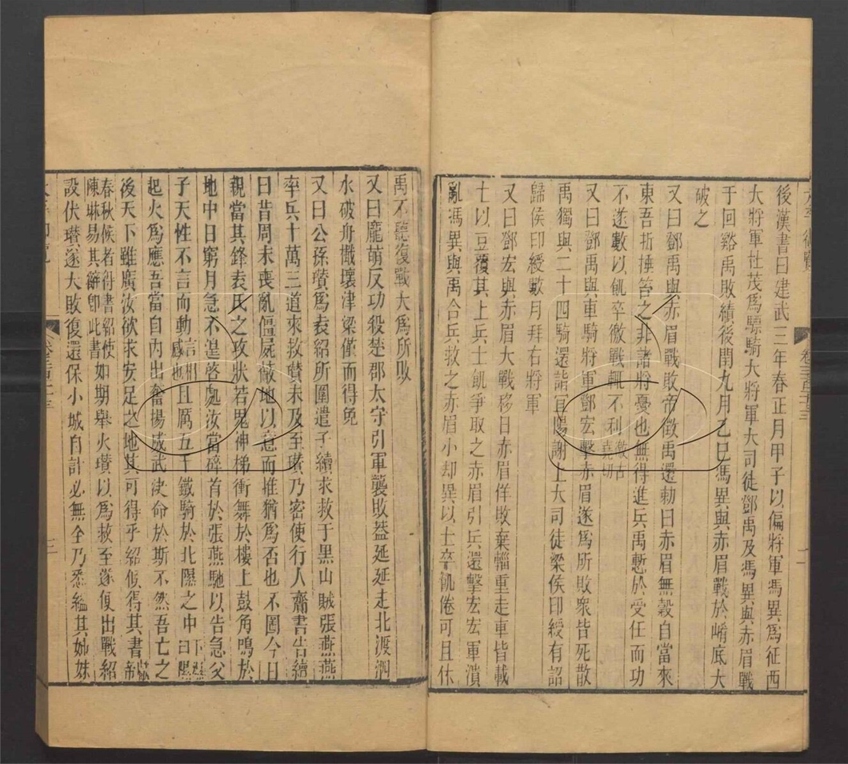 後漢書曰建武三年春正月甲子以偏將軍馮異爲征西
大將軍杜茂爲驃騎大將軍大司徒鄧禹及馮異與赤眉戰
于回谿禹敗績後閏九月乙巳馮異與赤眉戰於崤底大
破之
又曰鄧禹與赤眉戰敗帝徵禹還勅曰赤眉無穀自當來
東吾折捶笞之非諸將憂也無得進兵禹慙於受任而功
不遂數以飢卒徼戰輒不利
又曰鄧禹與車騎將軍鄧宏擊赤眉遂爲所敗衆皆死散
禹獨與二十四騎還詣宜陽謝上大司徒梁侯印綬有詔
歸侯印綬數月拜右將軍
又曰鄧宏與赤眉大戰移日赤眉佯敗棄輜重走車皆載
土以豆覆其上兵士飢爭取之赤眉引兵還擊宏宏軍潰
亂馮異與禹合兵救之赤眉小却異以士卒飢倦可且休
禹不聽復戰大爲所敗
又曰龐萌反攻殺楚郡太守引軍襲敗蓋延延走北渡泗
水破舟檝壞津梁僅而得免
又曰公孫瓚爲袁紹所圍遣子續求救于黑山賊張燕燕
率兵十萬三道來救瓚未及至瓚乃密使行人齎書告續
曰昔周末喪亂僵屍蔽地以意而推猶爲否也不圖今日
親當其鋒袁氏之攻狀若鬼神梯衝舞於樓上鼓角鳴於
地中日窮月急不遑啓處汝當碎首於張燕馳以告急父
子天性不言而動言相感也且厲五千鐵騎於北隰之中
起火爲應吾當自內出奮揚威武決命於斯不然吾亡之
後天下雖廣汝欲求安足之地其可得乎紹候得其書
春秋候者得書紹使陳琳易其辭卽此書如期舉火瓚以爲救至遂便出戰紹
設伏瓚遂大敗復還保小城自計必無全乃悉縊其姊妹